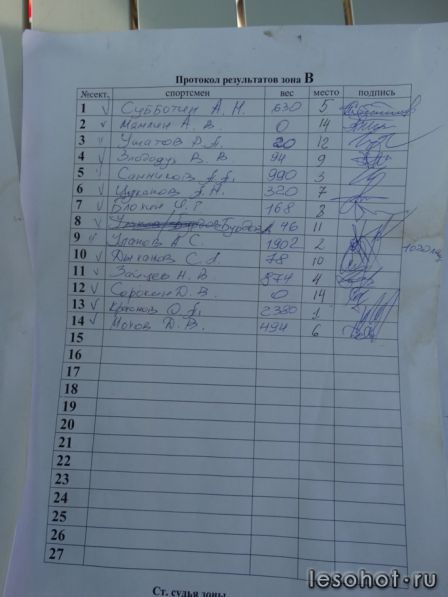 Протокол результатов зона В
№сект. спортсмен вес место подпись
1 Субботин А. Н. 630 5
2 Манкин А. В. 0 14
3 Ушатов 20 12
4 В. В 94 9
5 Санников 990 3
6 Цуканов 320 7
7 Блохин 168 8
8 46 11
9 Уланов А С. 1902 2
10 Дыханов С. 78 10
11 Зайцев Н. В. 874 4
12 Сорокин Д. В. 0 14
13 Краснов О. 2380 1
14 Мохов Д. В. 494 6
15
16
17
18
19
20
21
22
23
24
25
26
27
Ст. судья зоны
lesohot.ru